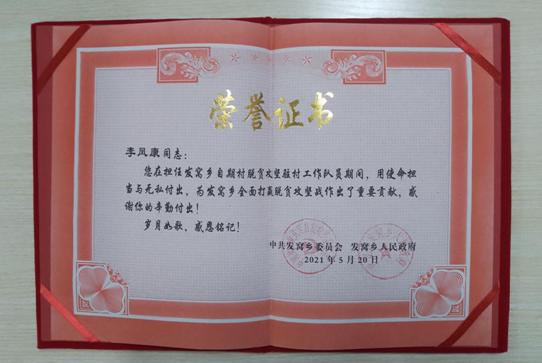 荣誉证书
李凤康同志：
您在担任发窝乡自期村脱贫攻坚驻村工作队员期间，用使命担
当与无私付出，为发窝乡全面打赢脱贫攻坚战作出了重要贡献，感
谢你的辛勤付出！
岁月如歌，感恩铭记！
中共发窝乡委员会 发窝乡人民政府
2021 年 5 月 20 日